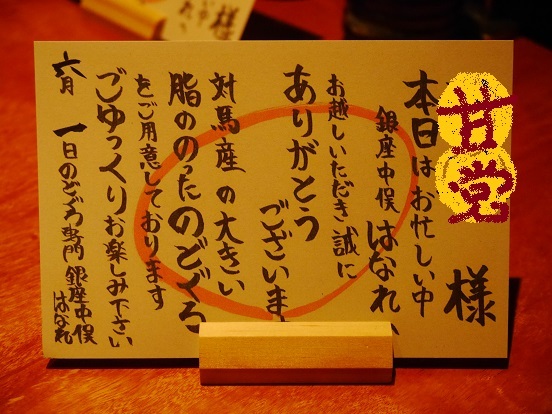 甘党 様
本日はお忙しい中
銀座中俣 はなれへ
お越しいただき誠に
ありがとう
ございま
対馬産の大きい
脂ののったのどぐろ
をご用意しております
ごゆっくりお楽しみ下さい
六月 一日 のどぐろ専門 銀座中俣
はなれ
様